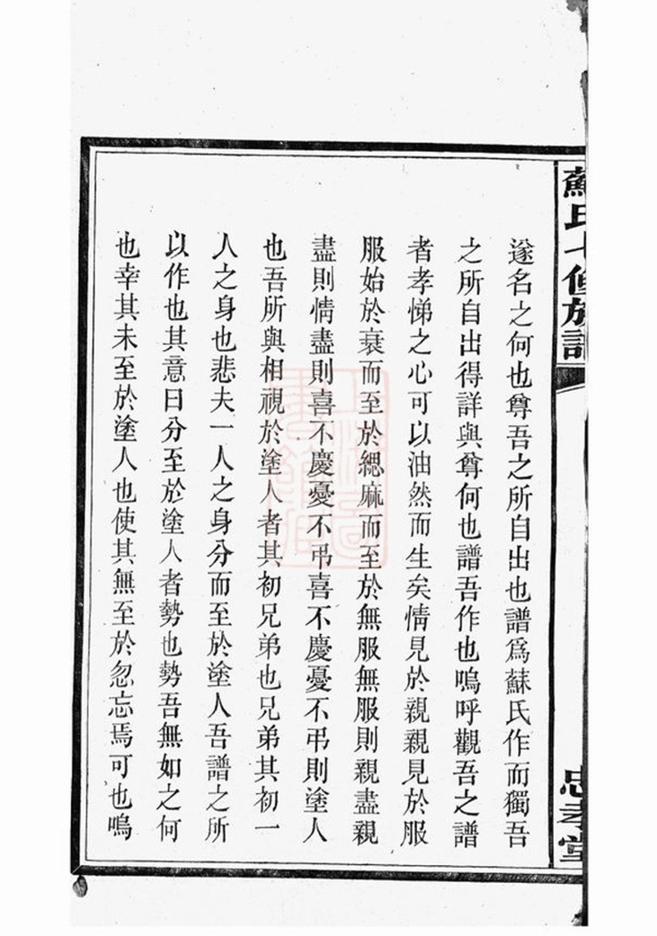 蘇氏七修族譜
忠孝堂
遂名之何也尊吾之所自出也譜爲蘇氏作而獨吾
之所自出得詳與尊何也譜吾作也嗚呼觀吾之譜
者孝悌之心可以油然而生矣情見於親親見於服
服始於衰而至於緦麻而至於無服無服則親盡親
盡則情盡則喜不慶憂不弔喜不慶憂不弔則塗人
也吾所與相視於塗人者其初兄弟也兄弟其初一
人之身也悲夫一人之身分而至於塗人吾譜之所
以作也其意曰分至於塗人者勢也勢吾無如之何
也幸其未至於塗人也使其無至於忽忘焉可也嗚